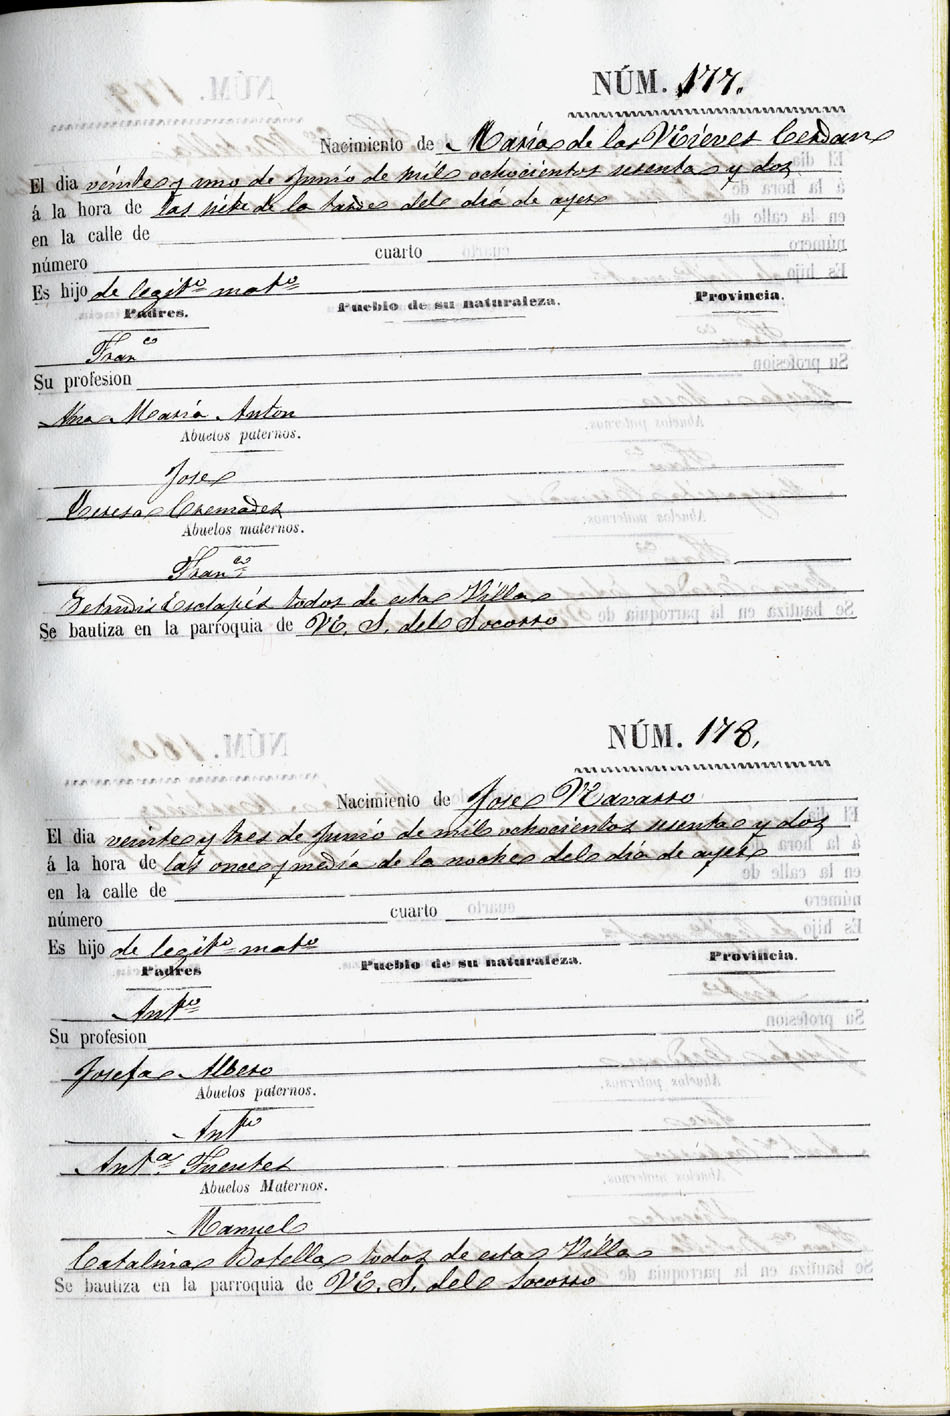 NÚM. 177.
Nacimiento de Maria de las Nieves Cerdan
El dia veinte y uno de Junio de mil ochocientos sesenta y dos
á la hora de las siete de la tarde del dia de ayer
en la calle de
número cuarto
Es hijo de legitº matº
Padres. Pueblo de su naturaleza. Provincia.
Franco
Su profesion
Ana Maria Anton
Abuelos paternos.
Jose
Teresa Cremades
Abuelos maternos.
Franco
Esclapés todos de esta Villa
Se bautiza en la parroquia de N. S. del Socorro
NÚM. 178.
Nacimiento de Jose Navarro
El dia veinte y tres de Junio de mil ochocientos sesenta y dos
á la hora de las once y media de la noche del dia de ayer
en la calle de
número cuarto
Es hijo de legitº matº
Padres Pueblo de su naturaleza. Provincia.
Antº
Su profesion
Josefa Albero
Abuelos paternos.
Antº
Antª Fuentes
Abuelos Maternos.
Manuel
Catalina Botella todos de esta Villa
Se bautiza en la parroquia de N. S. del Socorro